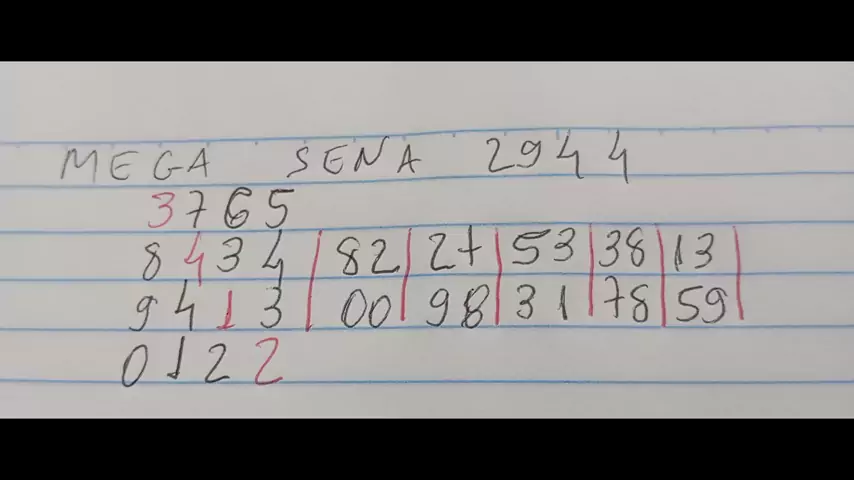 MEGA SENA 2944
3765
8434 | 82 | 27 | 53 | 38 | 13 |
9413 | 00 | 98 | 31 | 78 | 59 |
0122